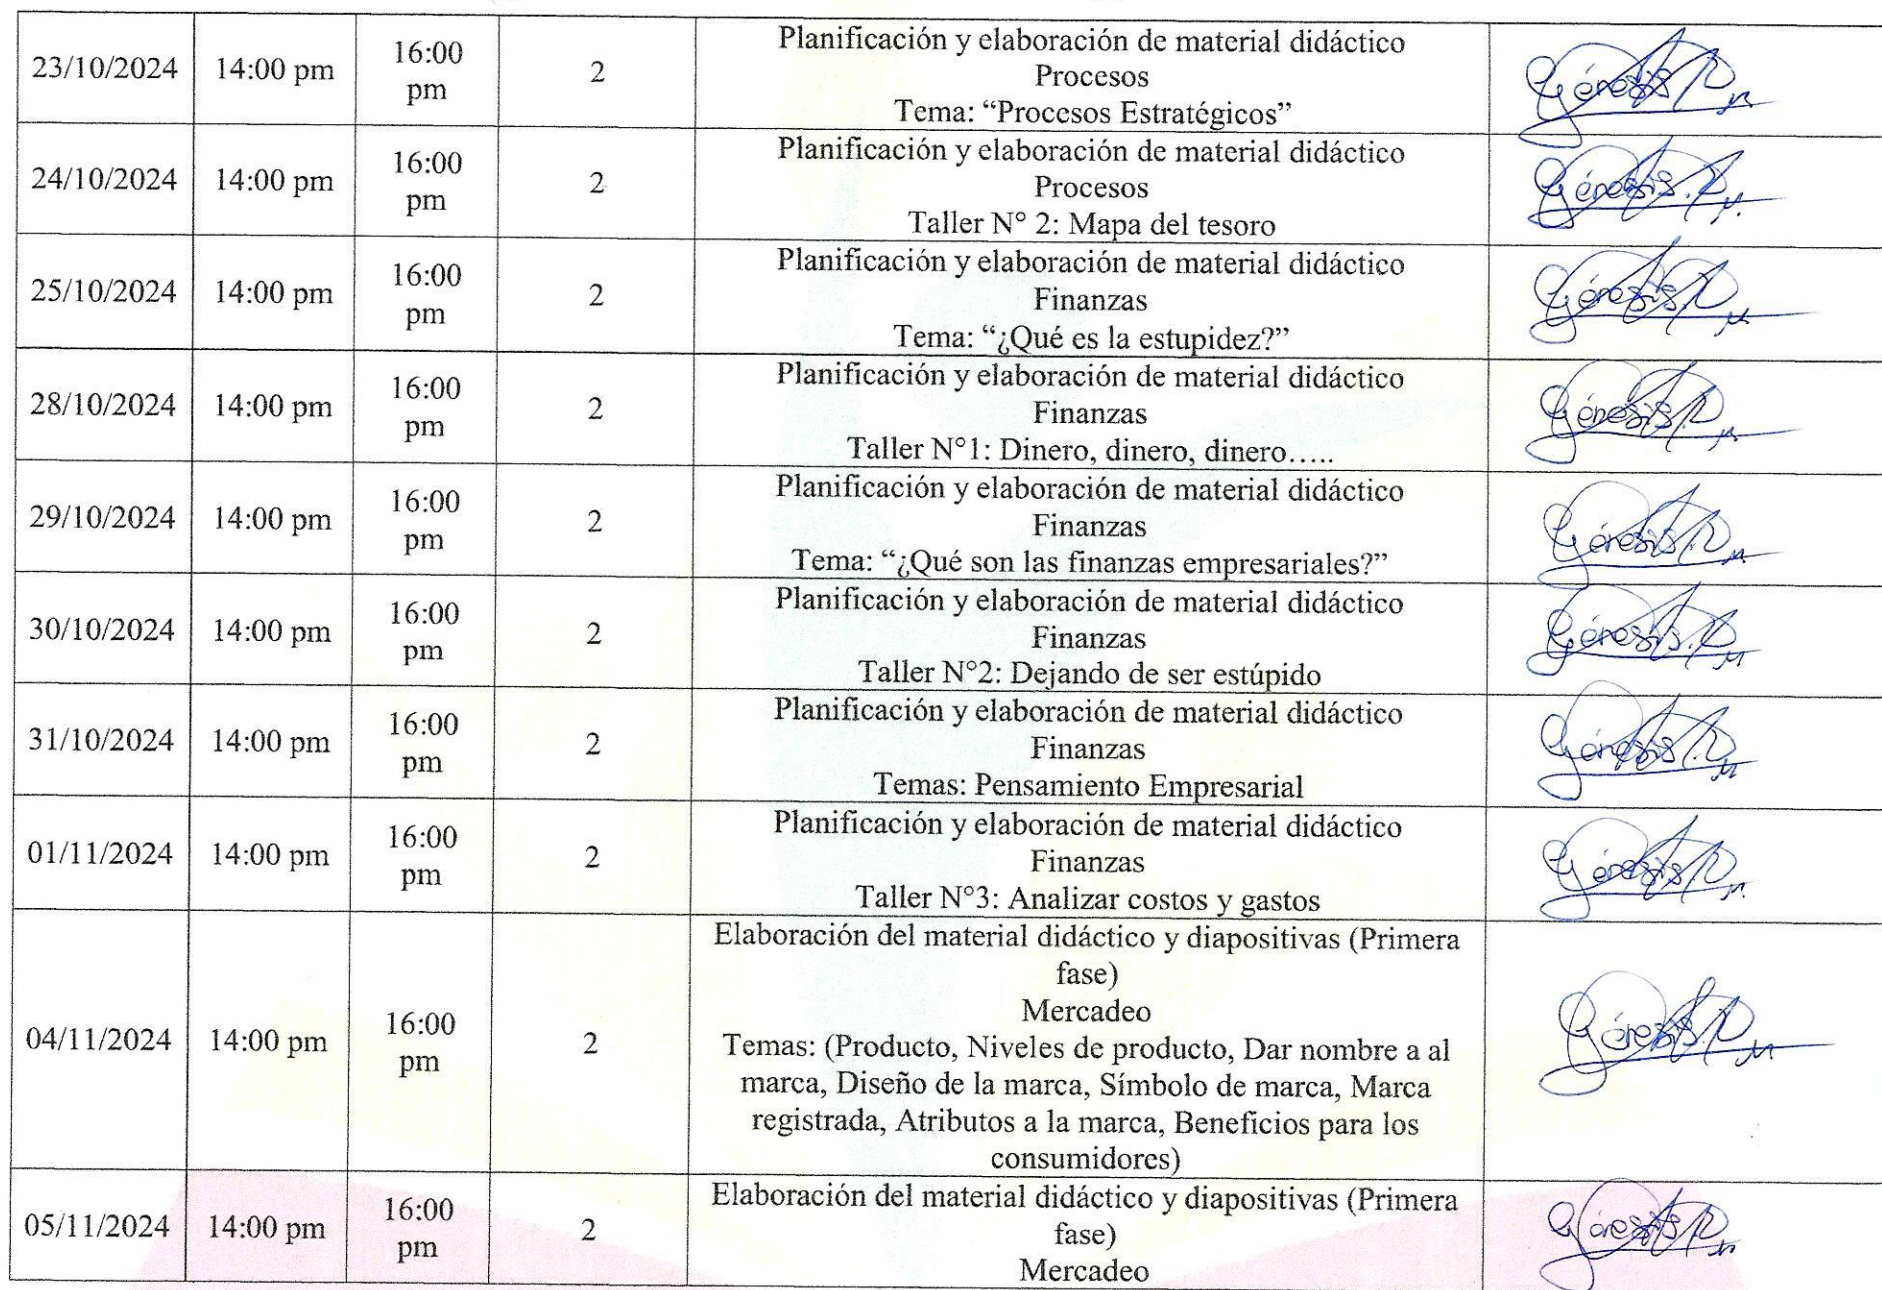 23/10/2024 14:00 pm 16:00 pm 2 Planificación y elaboración de material didáctico
Procesos
Tema: “Procesos Estratégicos”
Génesis R
24/10/2024 14:00 pm 16:00 pm 2 Planificación y elaboración de material didáctico
Procesos
Taller N° 2: Mapa del tesoro
Génesis R
25/10/2024 14:00 pm 16:00 pm 2 Planificación y elaboración de material didáctico
Finanzas
Tema: “¿Qué es la estupidez?”
Génesis R
28/10/2024 14:00 pm 16:00 pm 2 Planificación y elaboración de material didáctico
Finanzas
Taller N°1: Dinero, dinero, dinero…..
Génesis R
29/10/2024 14:00 pm 16:00 pm 2 Planificación y elaboración de material didáctico
Finanzas
Tema: “¿Qué son las finanzas empresariales?”
Génesis R
30/10/2024 14:00 pm 16:00 pm 2 Planificación y elaboración de material didáctico
Finanzas
Taller N°2: Dejando de ser estúpido
Génesis R
31/10/2024 14:00 pm 16:00 pm 2 Planificación y elaboración de material didáctico
Finanzas
Temas: Pensamiento Empresarial
Génesis R
01/11/2024 14:00 pm 16:00 pm 2 Planificación y elaboración de material didáctico
Finanzas
Taller N°3: Analizar costos y gastos
Génesis R
04/11/2024 14:00 pm 16:00 pm 2 Elaboración del material didáctico y diapositivas (Primera
fase)
Mercadeo
Temas: (Producto, Niveles de producto, Dar nombre a al
marca, Diseño de la marca, Símbolo de marca, Marca
registrada, Atributos a la marca, Beneficios para los
consumidores)
Génesis R
05/11/2024 14:00 pm 16:00 pm 2 Elaboración del material didáctico y diapositivas (Primera
fase)
Mercadeo
Génesis R